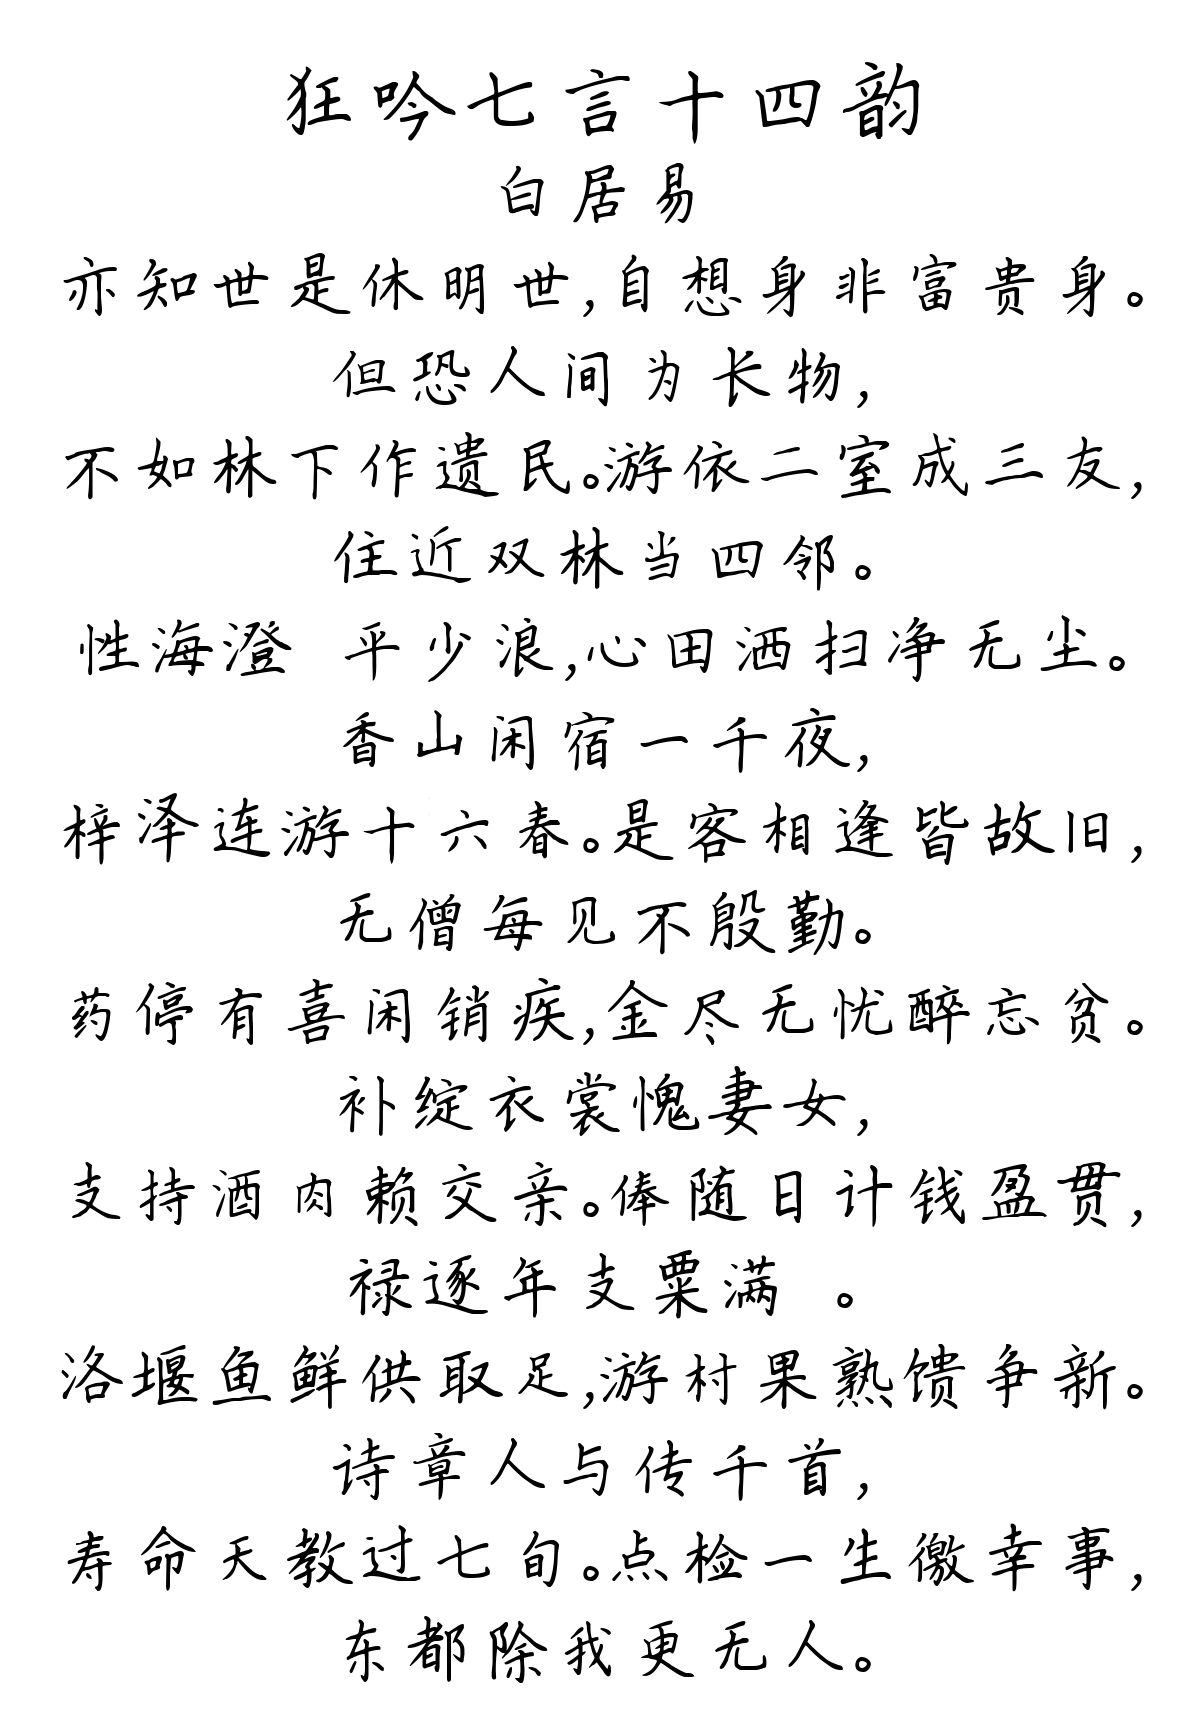 狂吟七言十四韵
白居易
亦知世是休明世,自想身非富贵身。
但恐人间为长物,
不如林下作遗民。游依二室成三友,
住近双林当四邻。
性海澄 平少浪,心田洒扫净无尘。
香山闲宿一千夜,
梓泽连游十六春。是客相逢皆故旧,
无僧每见不殷勤。
药停有喜闲销疾,金尽无忧醉忘贫。
补绽衣裳愧妻女,
支持酒肉赖交亲。俸随日计钱盈贯,
禄逐年支粟满 。
洛堰鱼鲜供取足,游村果熟馈争新。
诗章人与传千首,
寿命天教过七旬。点检一生徼幸事,
东都除我更无人。